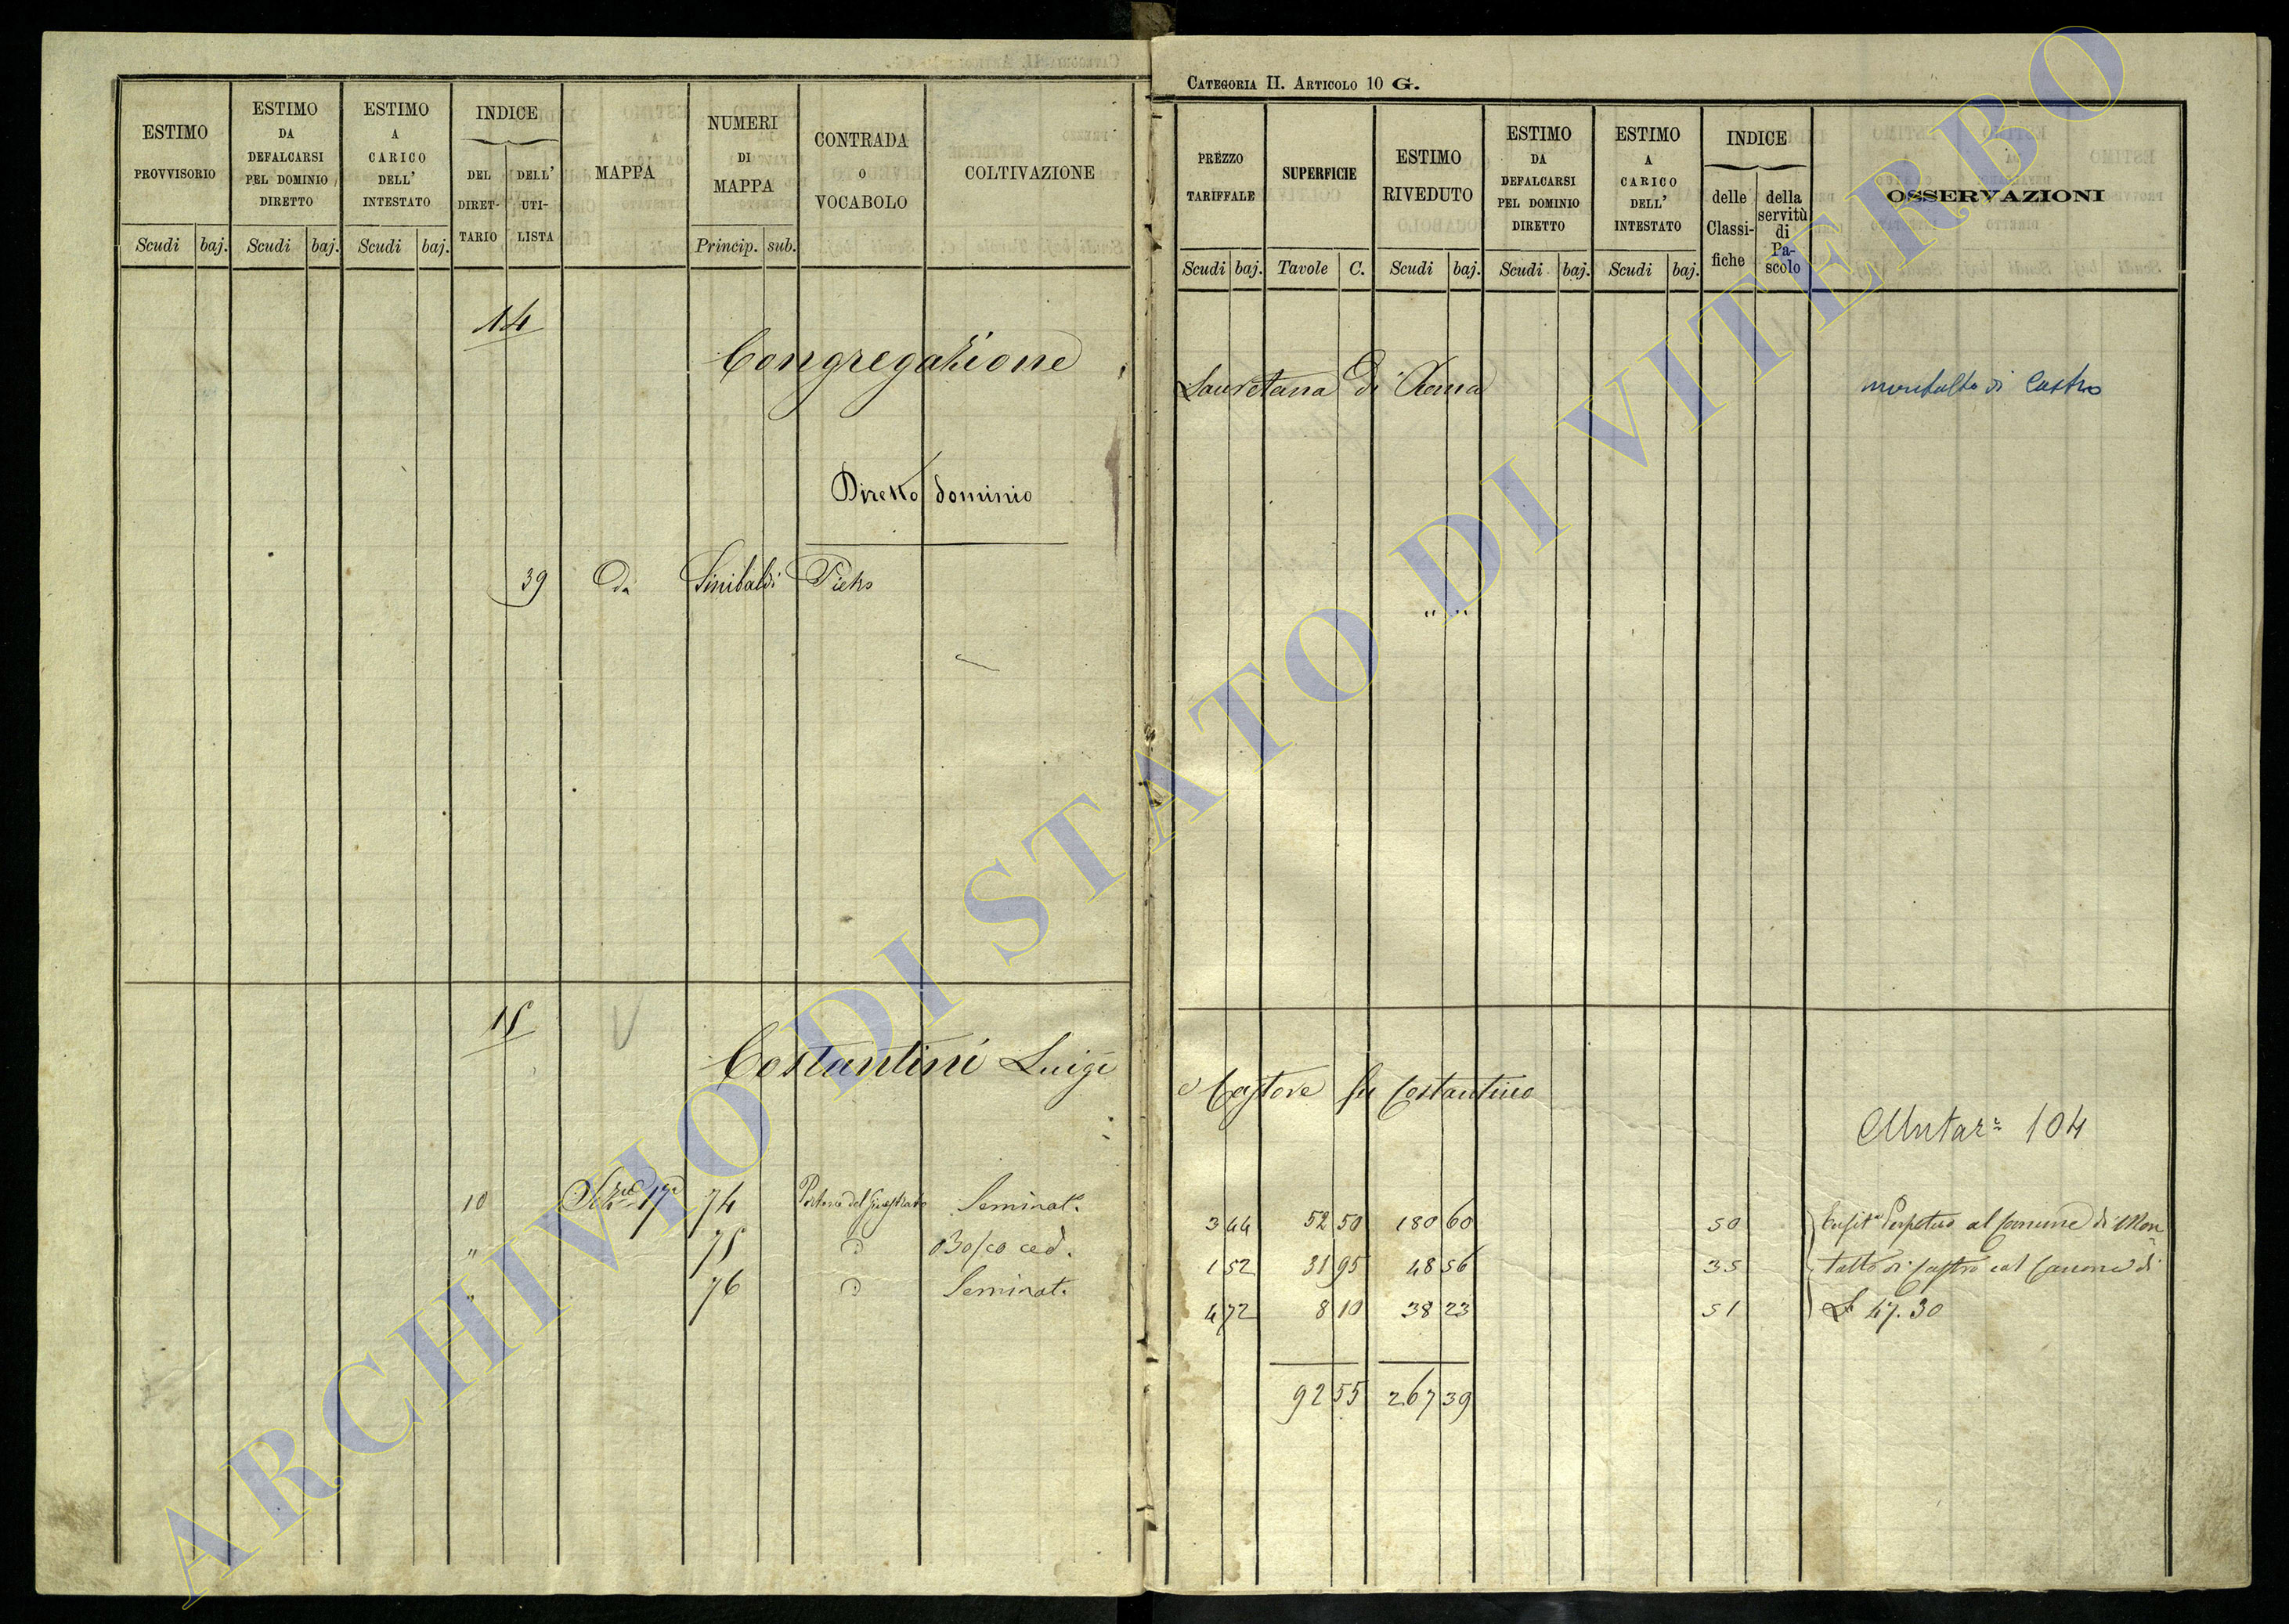 CATEGORIA II. ARTICOLO 10 G.
ESTIMO PROVVISORIO
Scudi baj.
ESTIMO DA DEFALCARSI PEL DOMINIO DIRETTO
Scudi baj.
ESTIMO A CARICO DELL' INTESTATO
Scudi baj.
INDICE
DEL DIRET-TARIO
DELL' UTI-LISTA
MAPPA
NUMERI DI MAPPA
Princip. sub.
CONTRADA O VOCABOLO
COLTIVAZIONE
PREZZO TARIFFALE
Scudi baj.
SUPERFICIE
Tavole C.
ESTIMO RIVEDUTO
Scudi baj.
ESTIMO DA DEFALCARSI PEL DOMINIO DIRETTO
Scudi baj.
ESTIMO A CARICO DELL' INTESTATO
Scudi baj.
INDICE
delle Classi-fiche
della servitù di Pa-scolo
OSSERVAZIONI
14
Congregazione Lauretana di Roma
montalto di Castro
Diretto dominio
39 da Sinibaldi " "
15
Costantini Luigi e Castore fu Costantino
104
10 17 74 Seminat. 3 44 52 50 180 60 50 Perpetua al Comune di Mon
" 75 Bosco ced. 1 52 31 95 48 56 35 talto di Castro col Canone di
" 76 Seminat. 4 72 8 10 38 23 51 47.30
92 55 267 39
ARCHIVIO DI STATO DI VITERBO